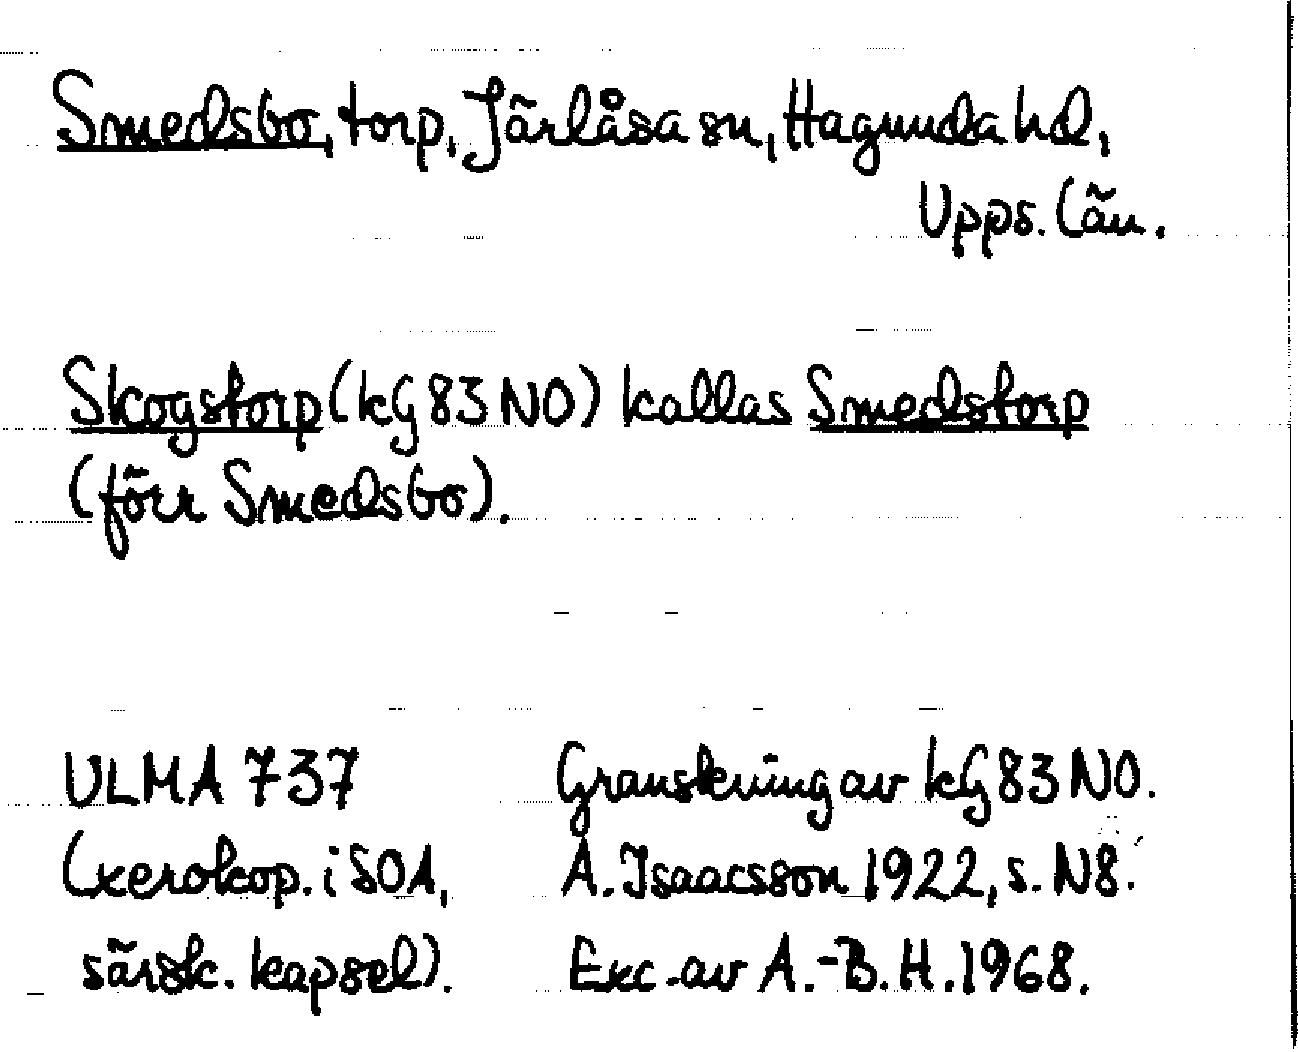 Smedsbo, torp, Järlåsa sn, Hagunda hd,
Upps. län.
Skogstorp (kG 83 NO) kallas Smedstorp
(förr Smedsbo).
ULMA 737
(xerokop. i SOA,
särsk. kapsel).
Granskning av kG 83 NO.
A. Isaacsson 1922, s. N8.
Exc. av A.-B. H. 1968.